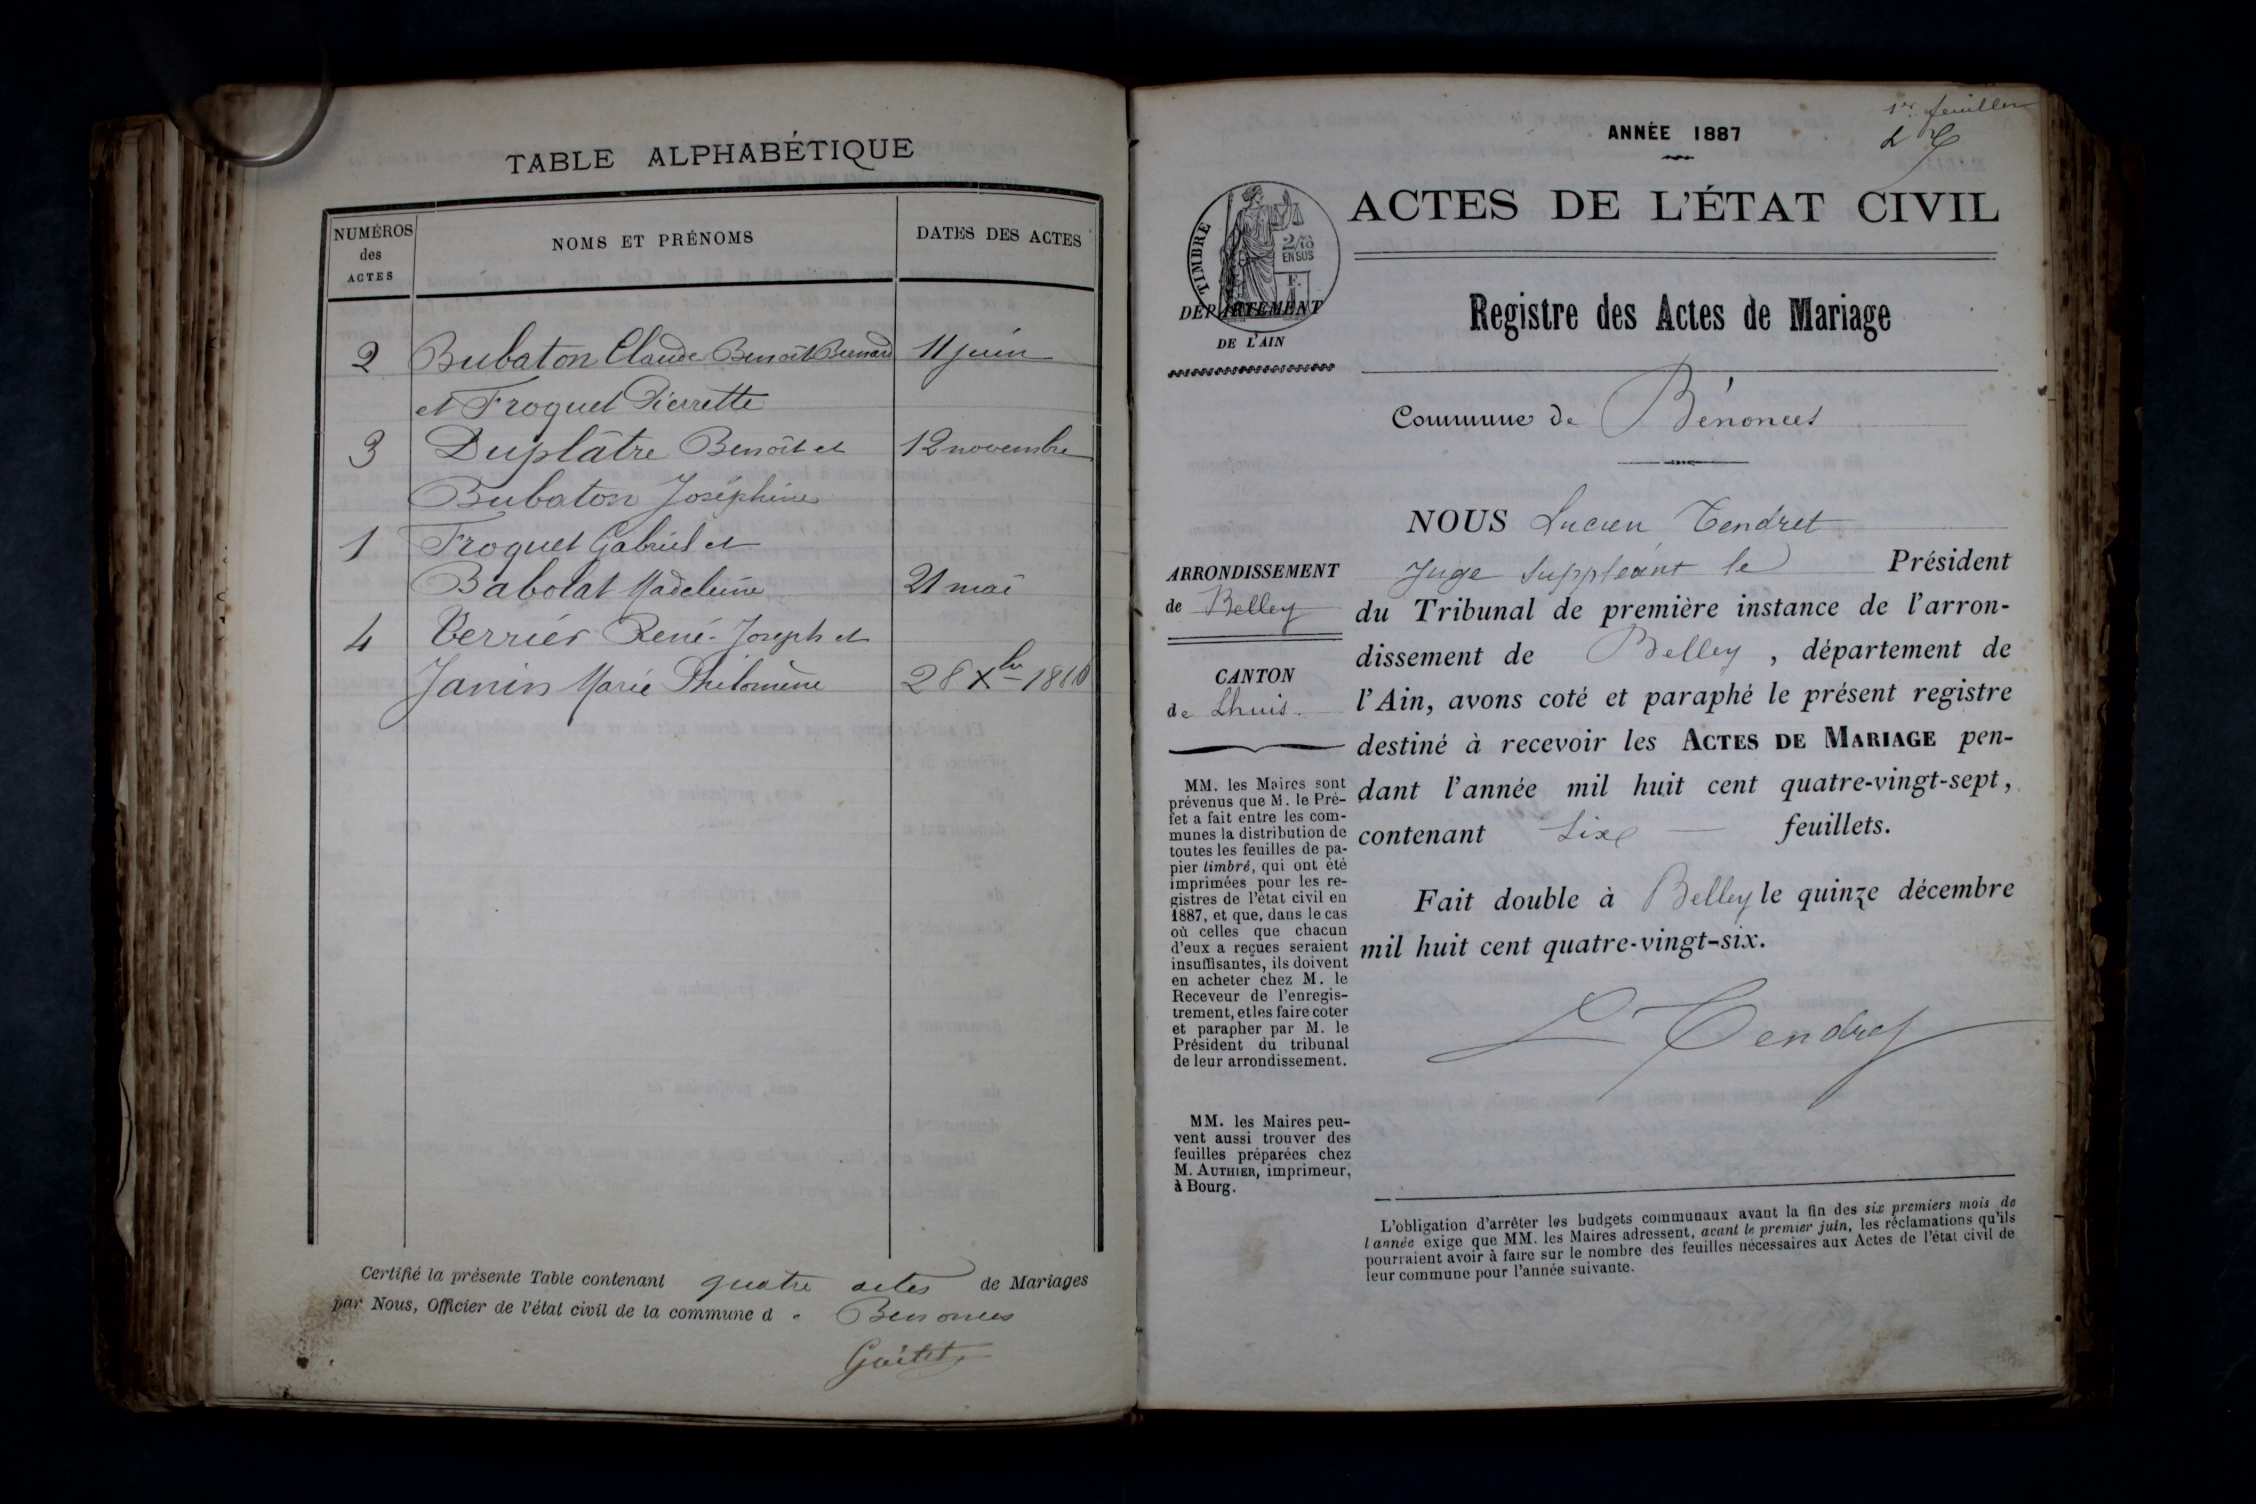 TABLE ALPHABÉTIQUE
NUMÉROS des ACTES
NOMS ET PRÉNOMS
DATES DES ACTES
2 Bubaton Claude Benoît Bernard 11 juin
et Froquet Pierrette
3 Duplâtre Benoît et 12 novembre
Bubaton Joséphine
1 Froquet Gabriel et
Babolat Madeleine 21 mai
4 Verrier René-Joseph et
Janin Marie Philomène 28 Xbre
Certifié la présente Table contenant quatre actes de Mariages
par Nous, Officier de l'état civil de la commune d e Benonces
1er feuillet
ANNÉE 1887
ACTES DE L'ÉTAT CIVIL
TIMBRE
2/10 EN SUS
DÉPARTEMENT
DE L'AIN
Registre des Actes de Mariage
Commune de Bénonces
ARRONDISSEMENT
de Belley
CANTON
de Lhuis.
MM. les Maires sont
prévenus que M. le Pré-
fet a fait entre les com-
munes la distribution de
toutes les feuilles de pa-
pier timbré, qui ont été
imprimées pour les re-
gistres de l'état civil en
1887, et que, dans le cas
où celles que chacun
d'eux a reçues seraient
insuffisantes, ils doivent
en acheter chez M. le
Receveur de l'enregis-
trement, et les faire coter
et parapher par M. le
Président du tribunal
de leur arrondissement.
MM. les Maires peu-
vent aussi trouver des
feuilles préparées chez
M. AUTHIER, imprimeur,
à Bourg.
NOUS Lucien Tendret
Juge Suppléant le Président
du Tribunal de première instance de l'arron-
dissement de Belley, département de
l'Ain, avons coté et paraphé le présent registre
destiné à recevoir les ACTES DE MARIAGE pen-
dant l'année mil huit cent quatre-vingt-sept,
contenant Six feuillets.
Fait double à Belley le quinze décembre
mil huit cent quatre-vingt-six.
L Tendret
L'obligation d'arrêter les budgets communaux avant la fin des six premiers mois de
l'année exige que MM. les Maires adressent, avant le premier juin, les réclamations qu'ils
pourraient avoir à faire sur le nombre des feuilles nécessaires aux Actes de l'état civil de
leur commune pour l'année suivante.